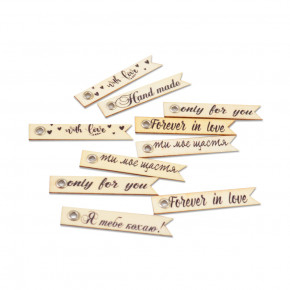 with Love
Hand made
only for you
Forever in love
with Love
ти моє щастя
ти моє щастя
only for you
Forever in love
Я тебе кохаю!